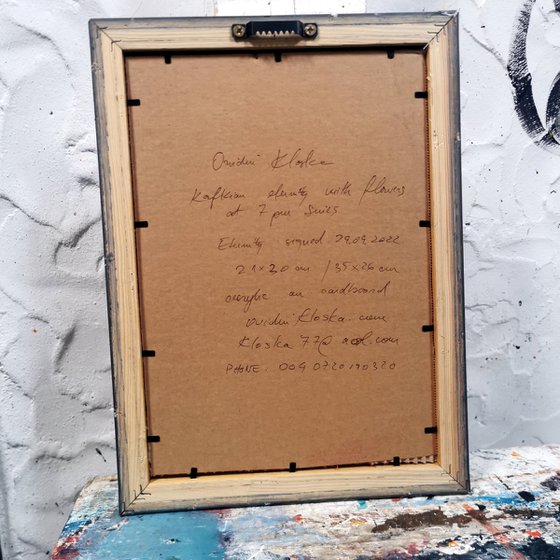 Ovidiu Kloska
Kafkian eternity with flowers
at 7 pm
Eternity signed 29.09.2022
21x30 cm / 35x26 cm
acrylic on cardboard
ovidiu kloska.com
kloska77@aol.com
PHONE: 004 0720190320